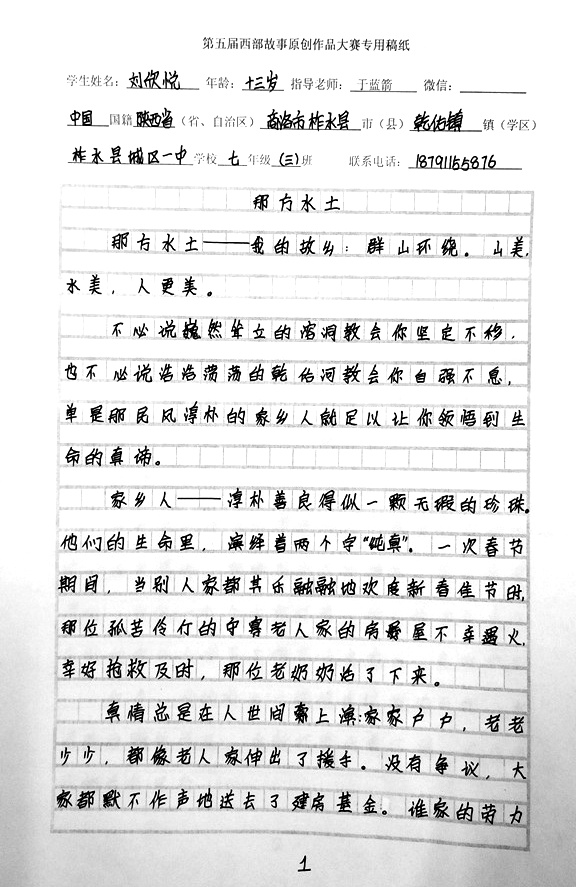 第五届西部故事原创作品大赛专用稿纸
学生姓名：刘欣悦 年龄：十三岁 指导老师：于蓝箭 微信：
中国 国籍 陕西省（省、自治区）商洛市柞水县 市（县）乾佑镇 镇（学区）
柞水县城区一中 学校 七 年级（三）班 联系电话：18791155876
那方水土
那方水土——我的故乡：群山环绕。山美，
水美，人更美。
不必说巍然耸立的溶洞教会你坚定不移，
也不必说浩浩荡荡的乾佑河教会你自强不息，
单是那民风淳朴的家乡人就足以让你领悟到生
命的真谛。
家乡人——淳朴善良得似一颗无瑕的珍珠。
他们的生命里，演绎着两个字“纯真”。一次春节
期间，当别人家都其乐融融地欢度新春佳节时，
那位孤苦伶仃的守寡老人家的房屋不幸遇火，
幸好抢救及时，那位老奶奶活了下来。
真情总是在人世间上演：家家户户，老老
少少，都像老人家伸出了援手。没有争议，大
家都默不作声地送去了建房基金。谁家的劳力
1